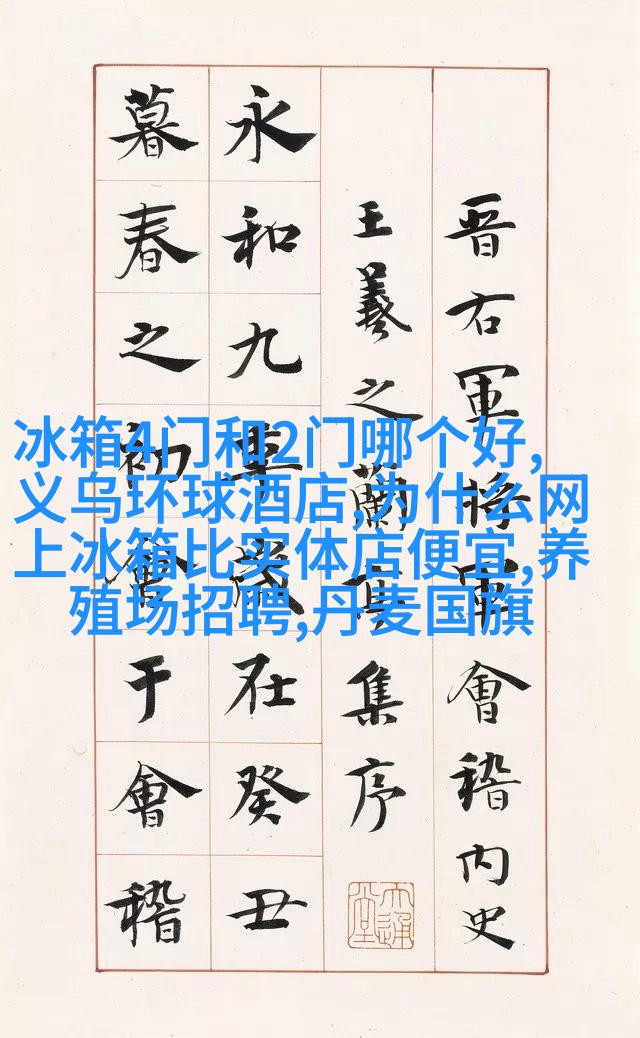 晋右軍將軍會稽内史
王羲之蘭亭集序
永和九年歲在癸丑
暮春之初會于會稽
冰箱4门和2门哪个好,
义乌环球酒店,为什么网
上冰箱比实体店便宜,养
殖场招聘,丹麦国旗